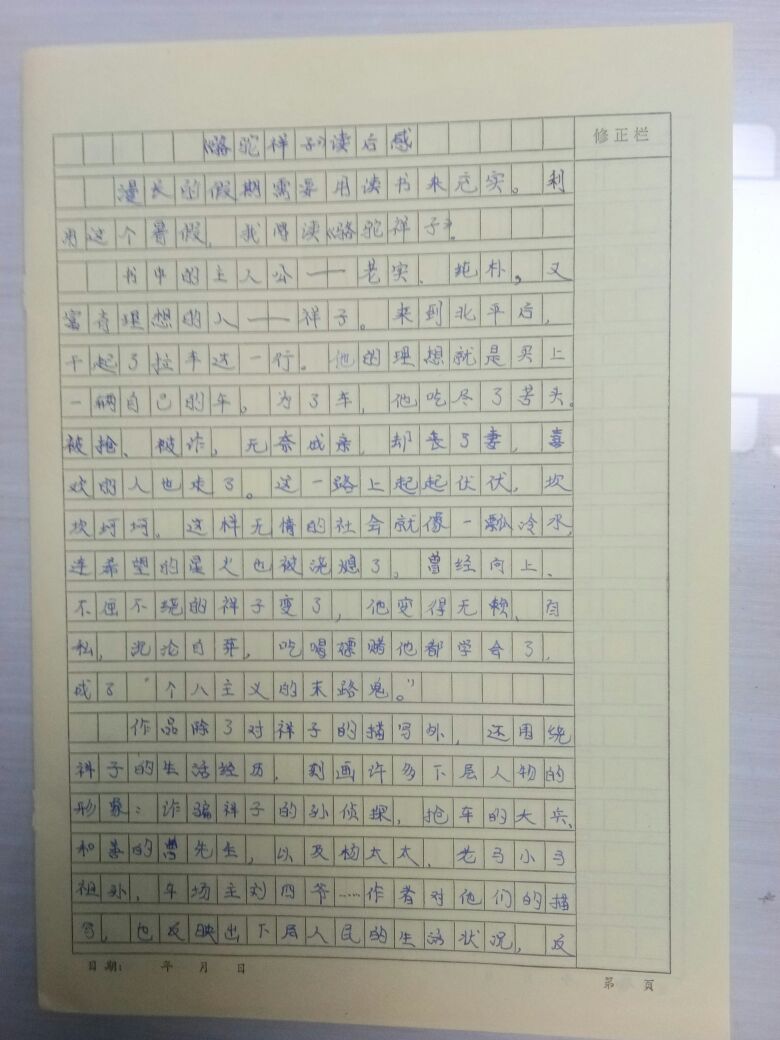 《骆驼祥子》读后感
修正栏
漫长的假期需要用读书来充实。利
用这个暑假，我阅读《骆驼祥子》。
书中的主人公——老实、纯朴，又
富有理想的人——祥子。来到北平后，
干起了拉车这一行。他的理想就是买上
一辆自己的车。为了车，他吃尽了苦头。
被抢、被诈，无奈成亲，却丧了妻，喜
欢的人也走了。这一路上起起伏伏，坎
坎坷坷。这样无情的社会就像一瓢冷水，
连希望的星火也被浇熄了。曾经向上、
不屈不挠的祥子变了，他变得无赖、自
私，沉沦自弃，吃喝嫖赌他都学会了，
成了“个人主义的末路鬼。”
作品除了对祥子的描写外，还围绕
祥子的生活经历，刻画许多下层人物的
形象：诈骗祥子的孙侦探，抢车的大兵、
和善的曹先生，以及杨太太、老马小马
祖孙，车场主刘四爷……作者对他们的描
写，也反映出下层人民的生活状况，反
日期： 年 月 日
第 頁